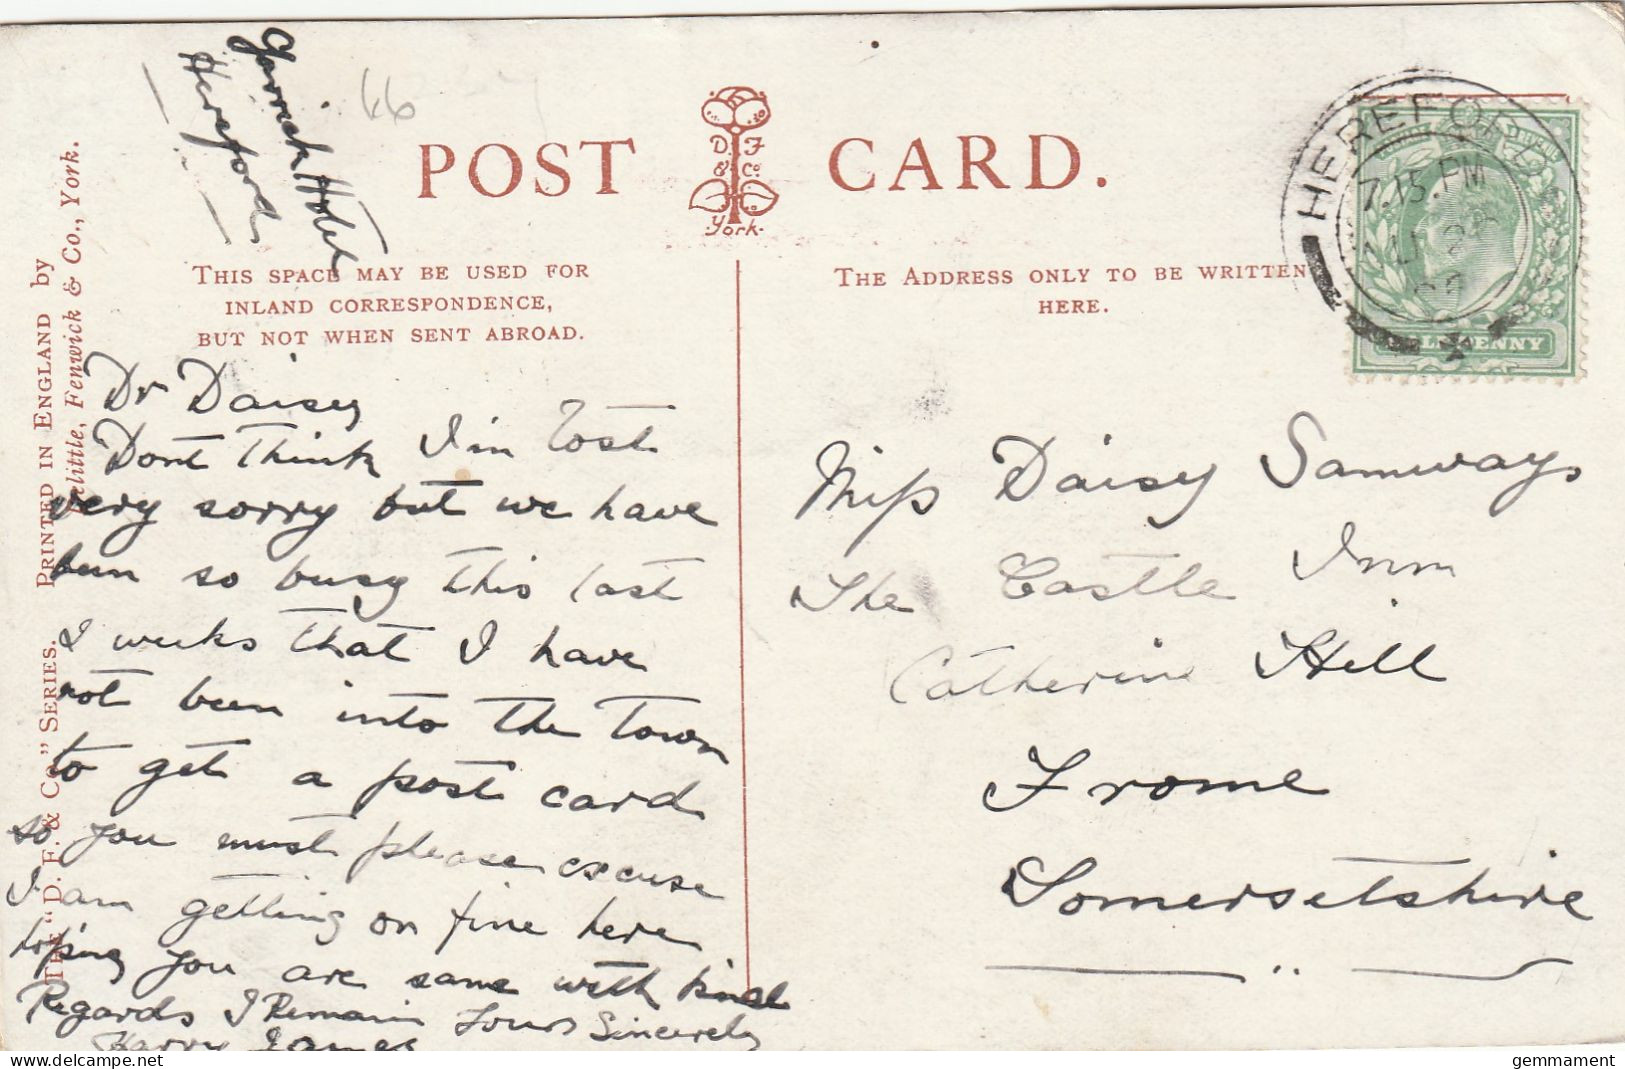 Garrick Hotel
Hereford
66
POST CARD.
D. F.
& Co.
York.
THIS SPACE MAY BE USED FOR
INLAND CORRESPONDENCE,
BUT NOT WHEN SENT ABROAD.
THE ADDRESS ONLY TO BE WRITTEN
HERE.
HEREFORD
7.15. PM
HALFPENNY
THE "D. F. & CO" SERIES. PRINTED IN ENGLAND by
Delittle, Fenwick & Co., York.
Dr Daisy
Dont Think I'm Lost
very sorry but we have
been so busy this last
2 weeks that I have
not been into the Town
to get a post card
so you must please excuse
I am getting on fine here
hoping you are same with kind
Regards I Remain Yours Sincerely
Harry James
Miss Daisy Samways
The Castle Inn
Catherine Hill
Frome
Somersetshire
gemmament